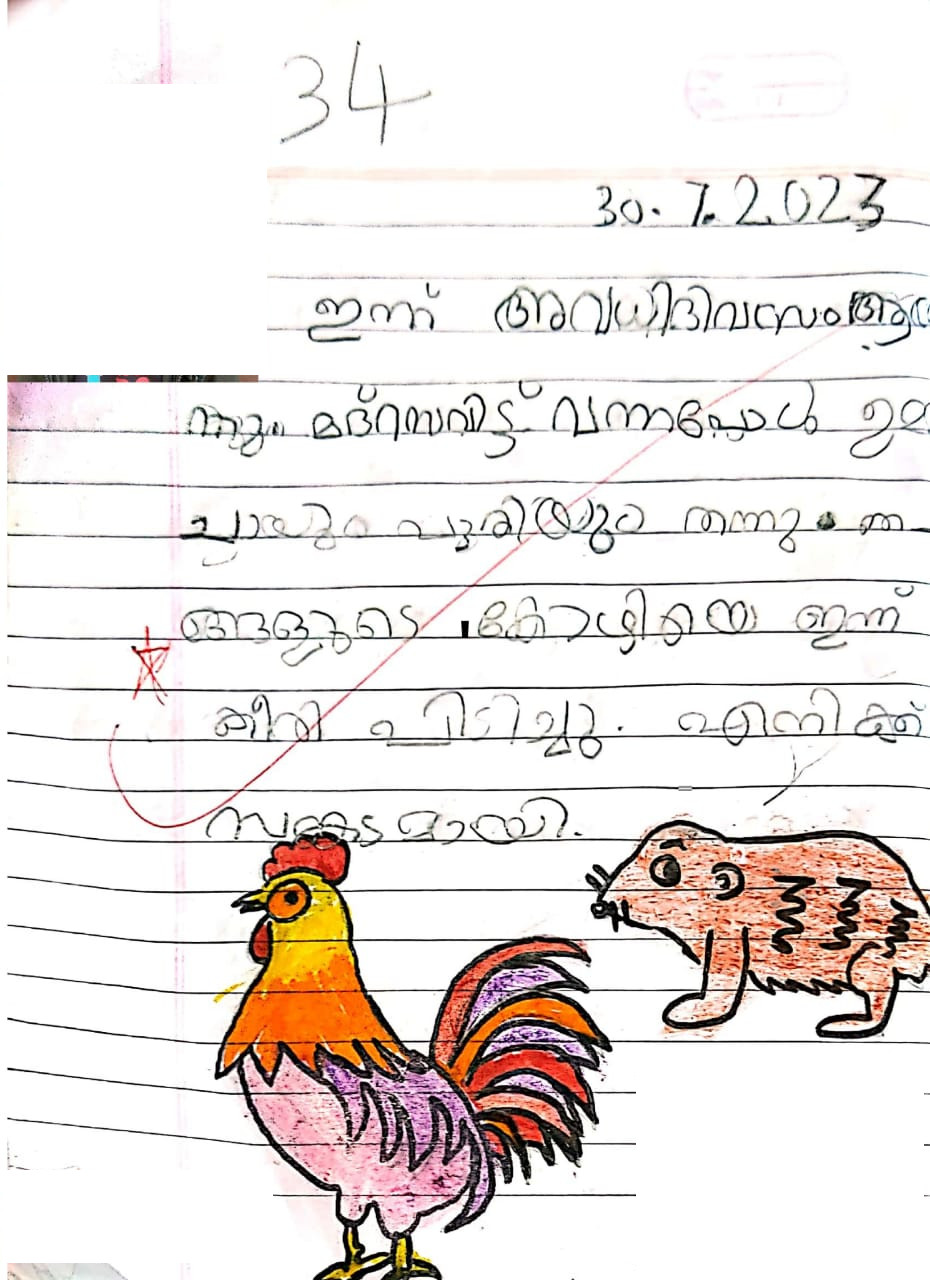 34
30.7.2023
ഇന്ന് അവധിദിവസം ആയ
മദ്റസവിട്ട് വന്നപ്പോൾ ഉമ
ച്ചായും പൂരിയും തന്നു ഞ
ങ്ങളുടെ കോഴിയെ ഇന്ന്
കീരി പിടിച്ചു. എനിക്ക്
സങ്കടമായി.